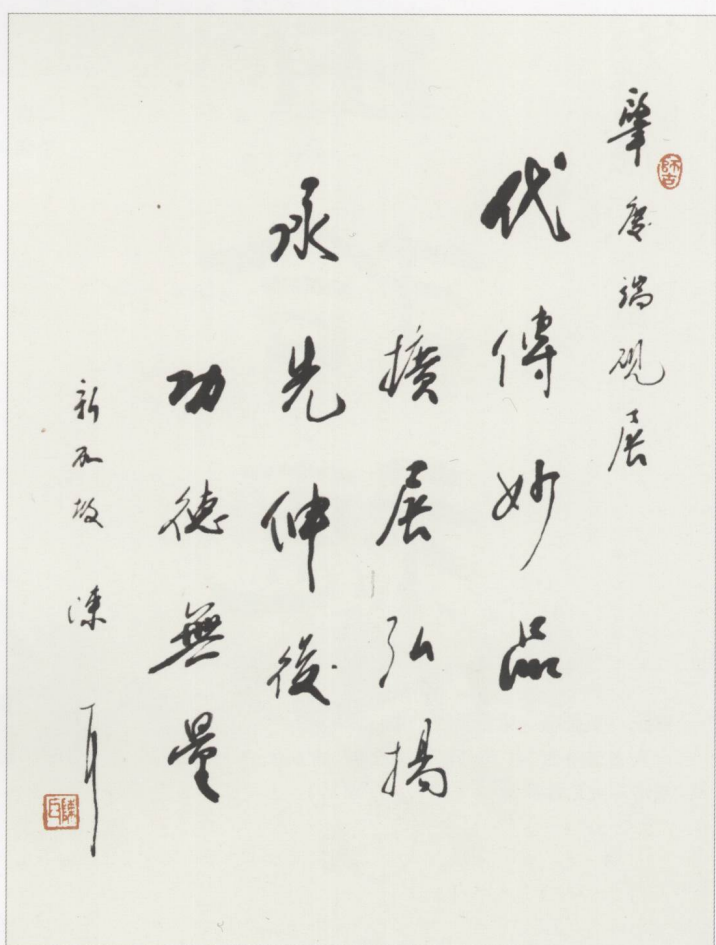 肇慶端硯展
師古
代傳妙品
擴展弘揚
承先伸後
功德無量
新加坡 陳